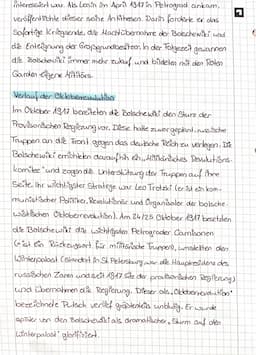 interessiert war. Als Lenin im April 1917 in Petrograd ankam,
veröffentlichte dieser seine Aprilthesen. Darin forderte er das
Sofortige Kriegsende, die Machtübernahme der Bolschewiki und
die Enteignung der Großgrundbesitzer. In der Folgezeit gewannen
die Bolschewiki immer mehr Zulauf und bildeten mit den Roten
Garden eigene Militärs.
Verlauf der Oktoberrevolution
Im Oktober 1917 bereiteten die Bolschewiki den Sturz der
Provisorischen Regierung vor. Diese hatte zuvor geplant, russische
Truppen an die Front gegen das deutsche Reich zu verlegen. Die
Bolschewiki errichteten daraufhin ein „Militärisches Revolutions-
komitee" und zogen die Unterstützung der Truppen auf ihre
Seite. Ihr wichtigster Stratege war Leo Trotzki (er ist ein kom-
munistischer Politiker, Revolutionär und Organisator der bolsche-
wistischen Oktoberrevolution). Am 24./25. Oktober 1917 besetzten
die Bolschewiki die wichtigsten Petrograder Garnisonen
(= ist ein Rückzugsort für militärische Truppen), umstellten den
Winterpalast (standort in St. Petersburg war die Hauptresidenz des
russischen Zaren und seit 1917 Sitz der provisorischen Regierung)
und übernahmen die Regierung. Dieser als „Oktoberrevolution"
bezeichnete Putsch verlief größtenteils unblutig. Er wurde
später von den Bolschewiki als dramatischer „Sturm auf den
Winterpalast" glorifiziert.